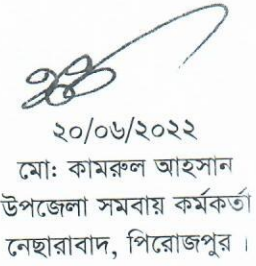 ২০/০৬/২০২২
মো: কামরুল আহসান
উপজেলা সমবায় কর্মকর্তা
নেছারাবাদ, পিরোজপুর ।